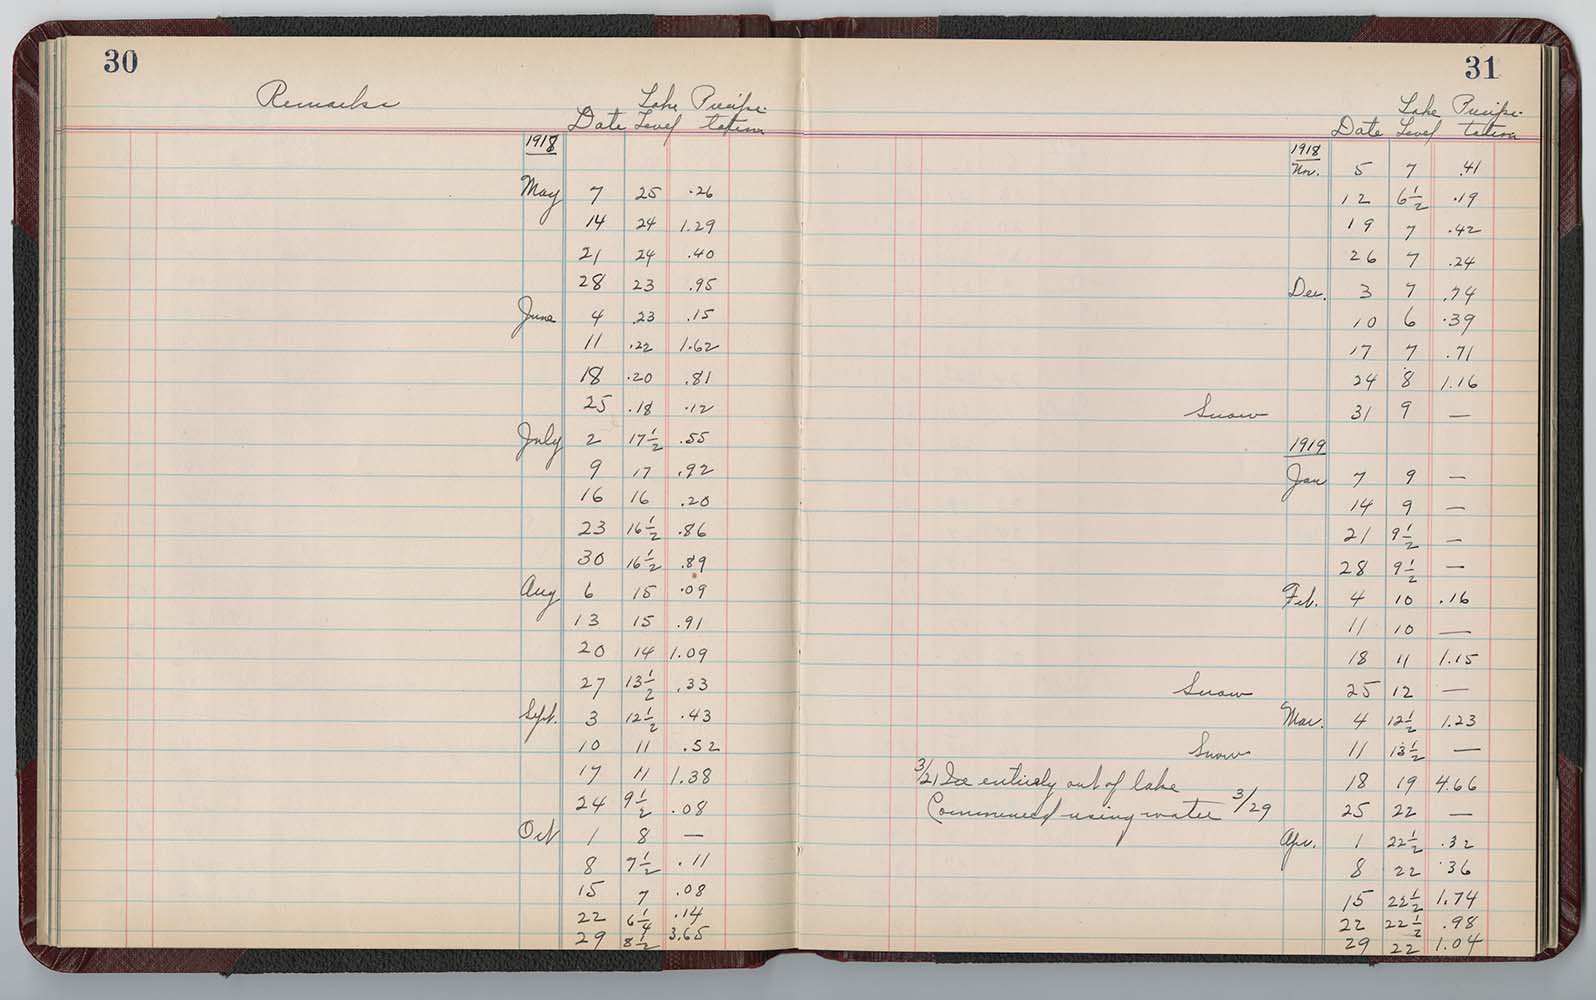 30
Remarks Date Lake Level Precipi-tation
1918
May 7 25 .26
14 24 1.29
21 24 .40
28 23 .95
June 4 .23 .15
11 .22 1.62
18 .20 .81
25 .18 .12
July 2 17 1/2 .55
9 17 .92
16 16 .20
23 16 1/2 .86
30 16 1/2 .89
Aug 6 15 .09
13 15 .91
20 14 1.09
27 13 1/2 .33
Sept. 3 12 1/2 .43
10 11 .52
17 11 1.38
24 9 1/2 .08
Oct 1 8 —
8 7 1/2 .11
15 7 .08
22 6 1/4 .14
29 8 1/2 3.65
31
Date Lake Level Precipi-tation
1918
Nov. 5 7 .41
12 6 1/2 .19
19 7 .42
26 7 .24
Dec. 3 7 .74
10 6 .39
17 7 .71
24 8 1.16
Snow 31 9 —
1919
Jan 7 9 —
14 9 —
21 9 1/2 —
28 9 1/2 —
Feb. 4 10 .16
11 10 —
18 11 1.15
Snow 25 12 —
Mar. 4 12 1/2 1.23
Snow 11 13 1/2 —
3/21 Ice entirely out of lake 18 19 4.66
Commenced using water 3/29 25 22 —
Apr. 1 22 1/2 .32
8 22 .36
15 22 1/2 1.74
22 22 1/2 .98
29 22 1.04